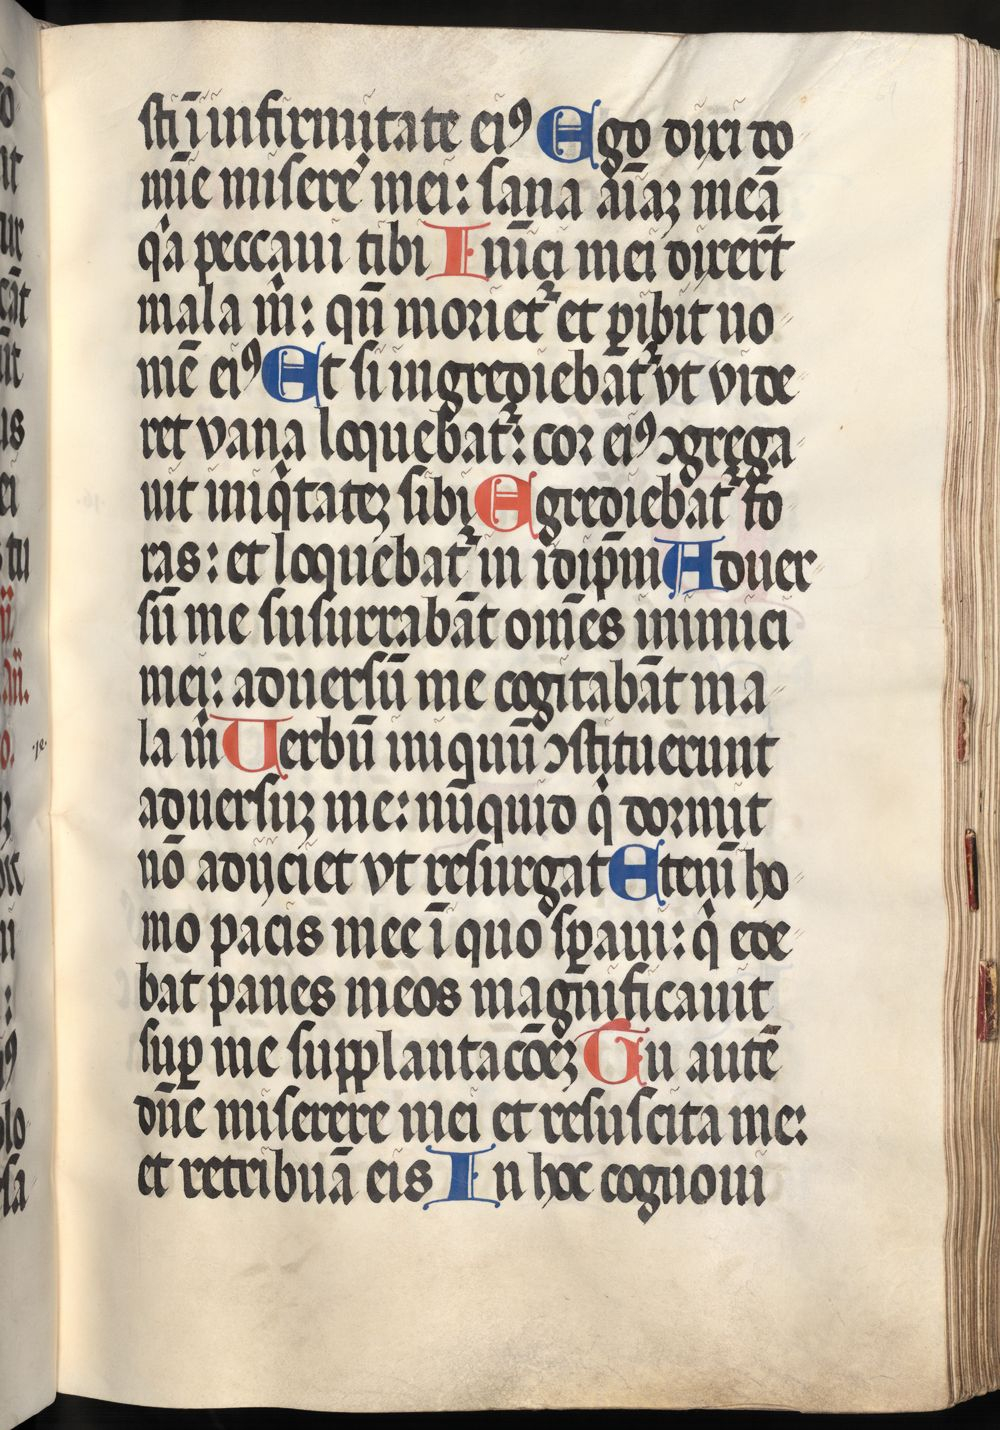 sti ī infirmitate eiꝰ Ego dixi do
mīe miserē mei: sana aīaꝫ meā
qͥa peccaui tibi Inīci mei dixert̄
mala m̄: qn̄ morietᷣ et ꝑibit no
mē eiꝰ Et si ingrediebatᷣ vt vide
ret vana loquebatᷣ: cor eiꝰ ↄgrega
uit iniqͥtateꝫ sibi Egrediebatᷣ fo
ras: et loquebatᷣ in idip̄m Aduer
sū me susurrabāt om̄es inimici
mei: aduersū me cogitabāt ma
la mͥ Uerbū iniquū ↄstituerunt
aduersuꝫ me: nūquid qͥ dormit
nō adijciet vt resurgat Etenī ho
mo pacis mee ī quo sꝑaui: qͥ ede
bat panes meos magnificauit
suꝑ me supplantacōeꝫ Tu autē
dn̄e miserere mei et resuscita me:
et retribuā eis In hoc cognoui